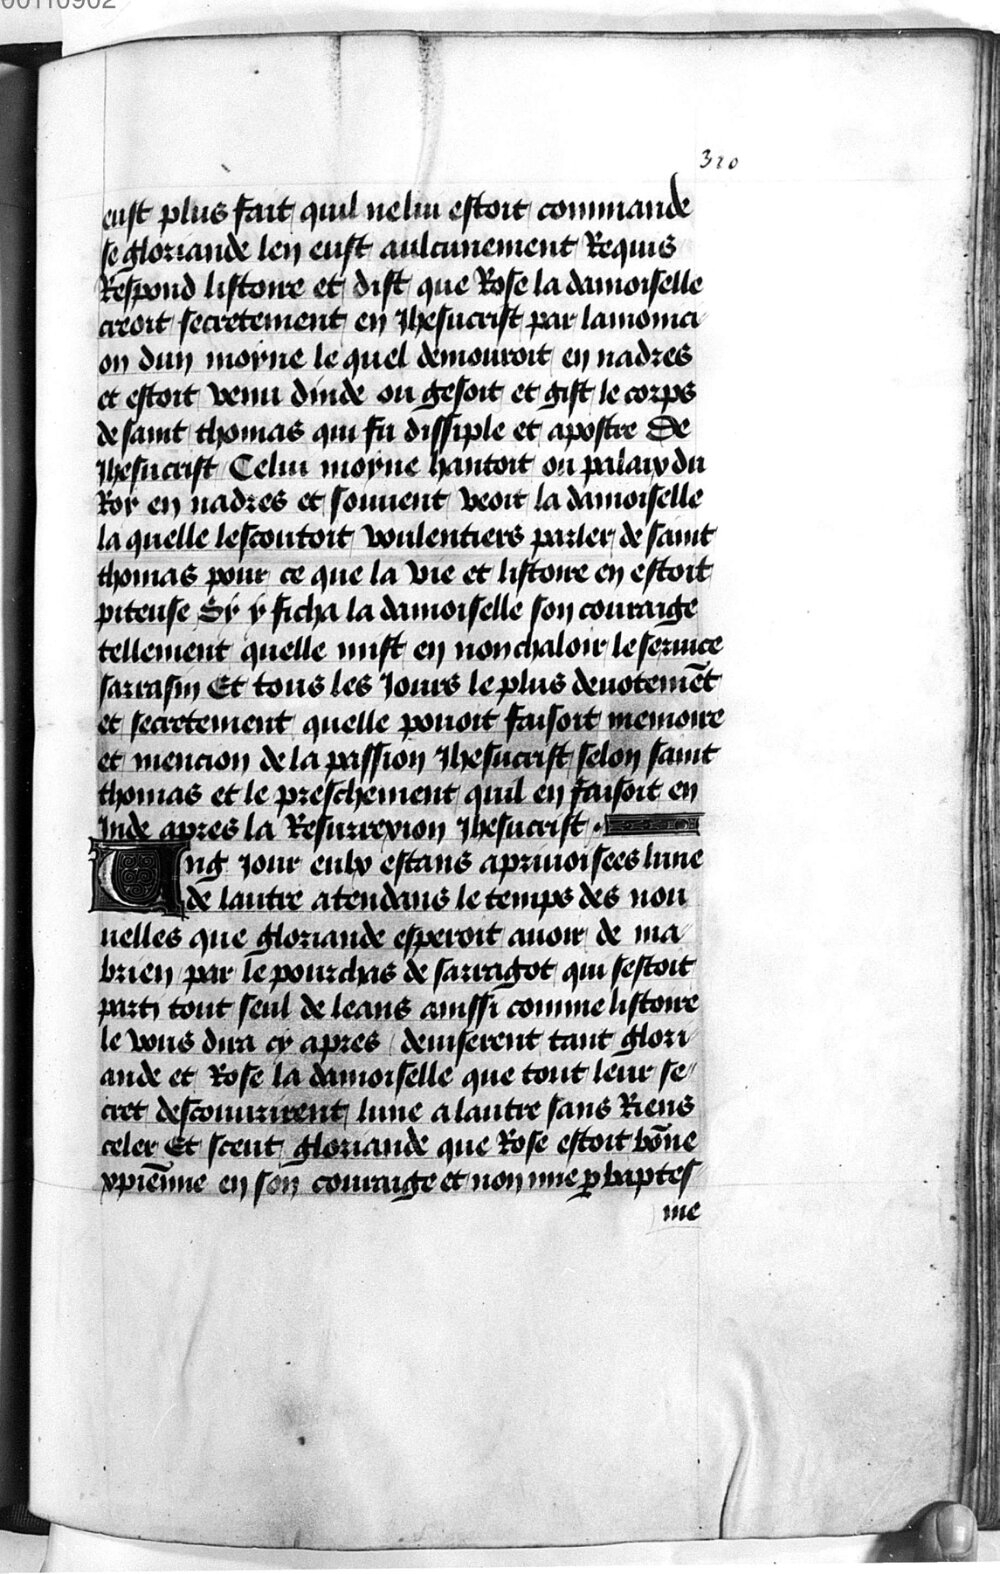 00110902
320
eust plus fait quil ne lui estoit commande
se gloriande len eust aulcunement Requis
Respond listoire et dist que Rose la damoiselle
creoit secretement en Jhesucrist par lamonici
on dun moyne le quel demouroit en nadres
et estoit venu dinde ou gesoit et gist le corps
de saint thomas qui fu dissiple et apostre De
Jhesucrist Celui moyne hantoit ou palaix du
Roy en nadres et souuent veoit la damoiselle
la quelle lescoutoit voulentiers parler de saint
thomas pour ce que la vie et listoire en estoit
piteuse Sy y ficha la damoiselle son couraige
tellement quelle mist en nonchaloir le seruice
sarrasin Et tous les Jours le plus deuotemēt
et secretement quelle pouoit faisoit memoire
et mencion de la passion Jhesucrist selon saint
thomas et le preschement quil en faisoit en
Inde apres la Resurrexion Jhesucrist .
Ung Jour eulx estans apriuoisees lune
de lautre atendans le temps des nou
uelles que gloriande esperoit auoir de ma
brien par le pourchas de sarragot qui sestoit
parti tout seul de leans ainssi comme listoire
le vous dira cy apres / deuiserent tant glori
ande et Rose la damoiselle que tout leur se
cret descouurirent lune a lautre sans Riens
celer Et sceut gloriande que Rose estoit bōne
xpiēnne en son couraige et non mie ꝑ baptes
me